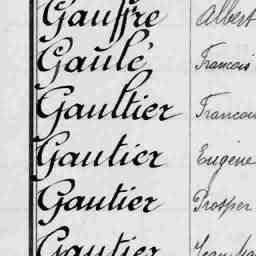 Gauffre Albert
Gaulé Francois
Gaultier
Gautier Eugène
Gautier Prosper
Gautier